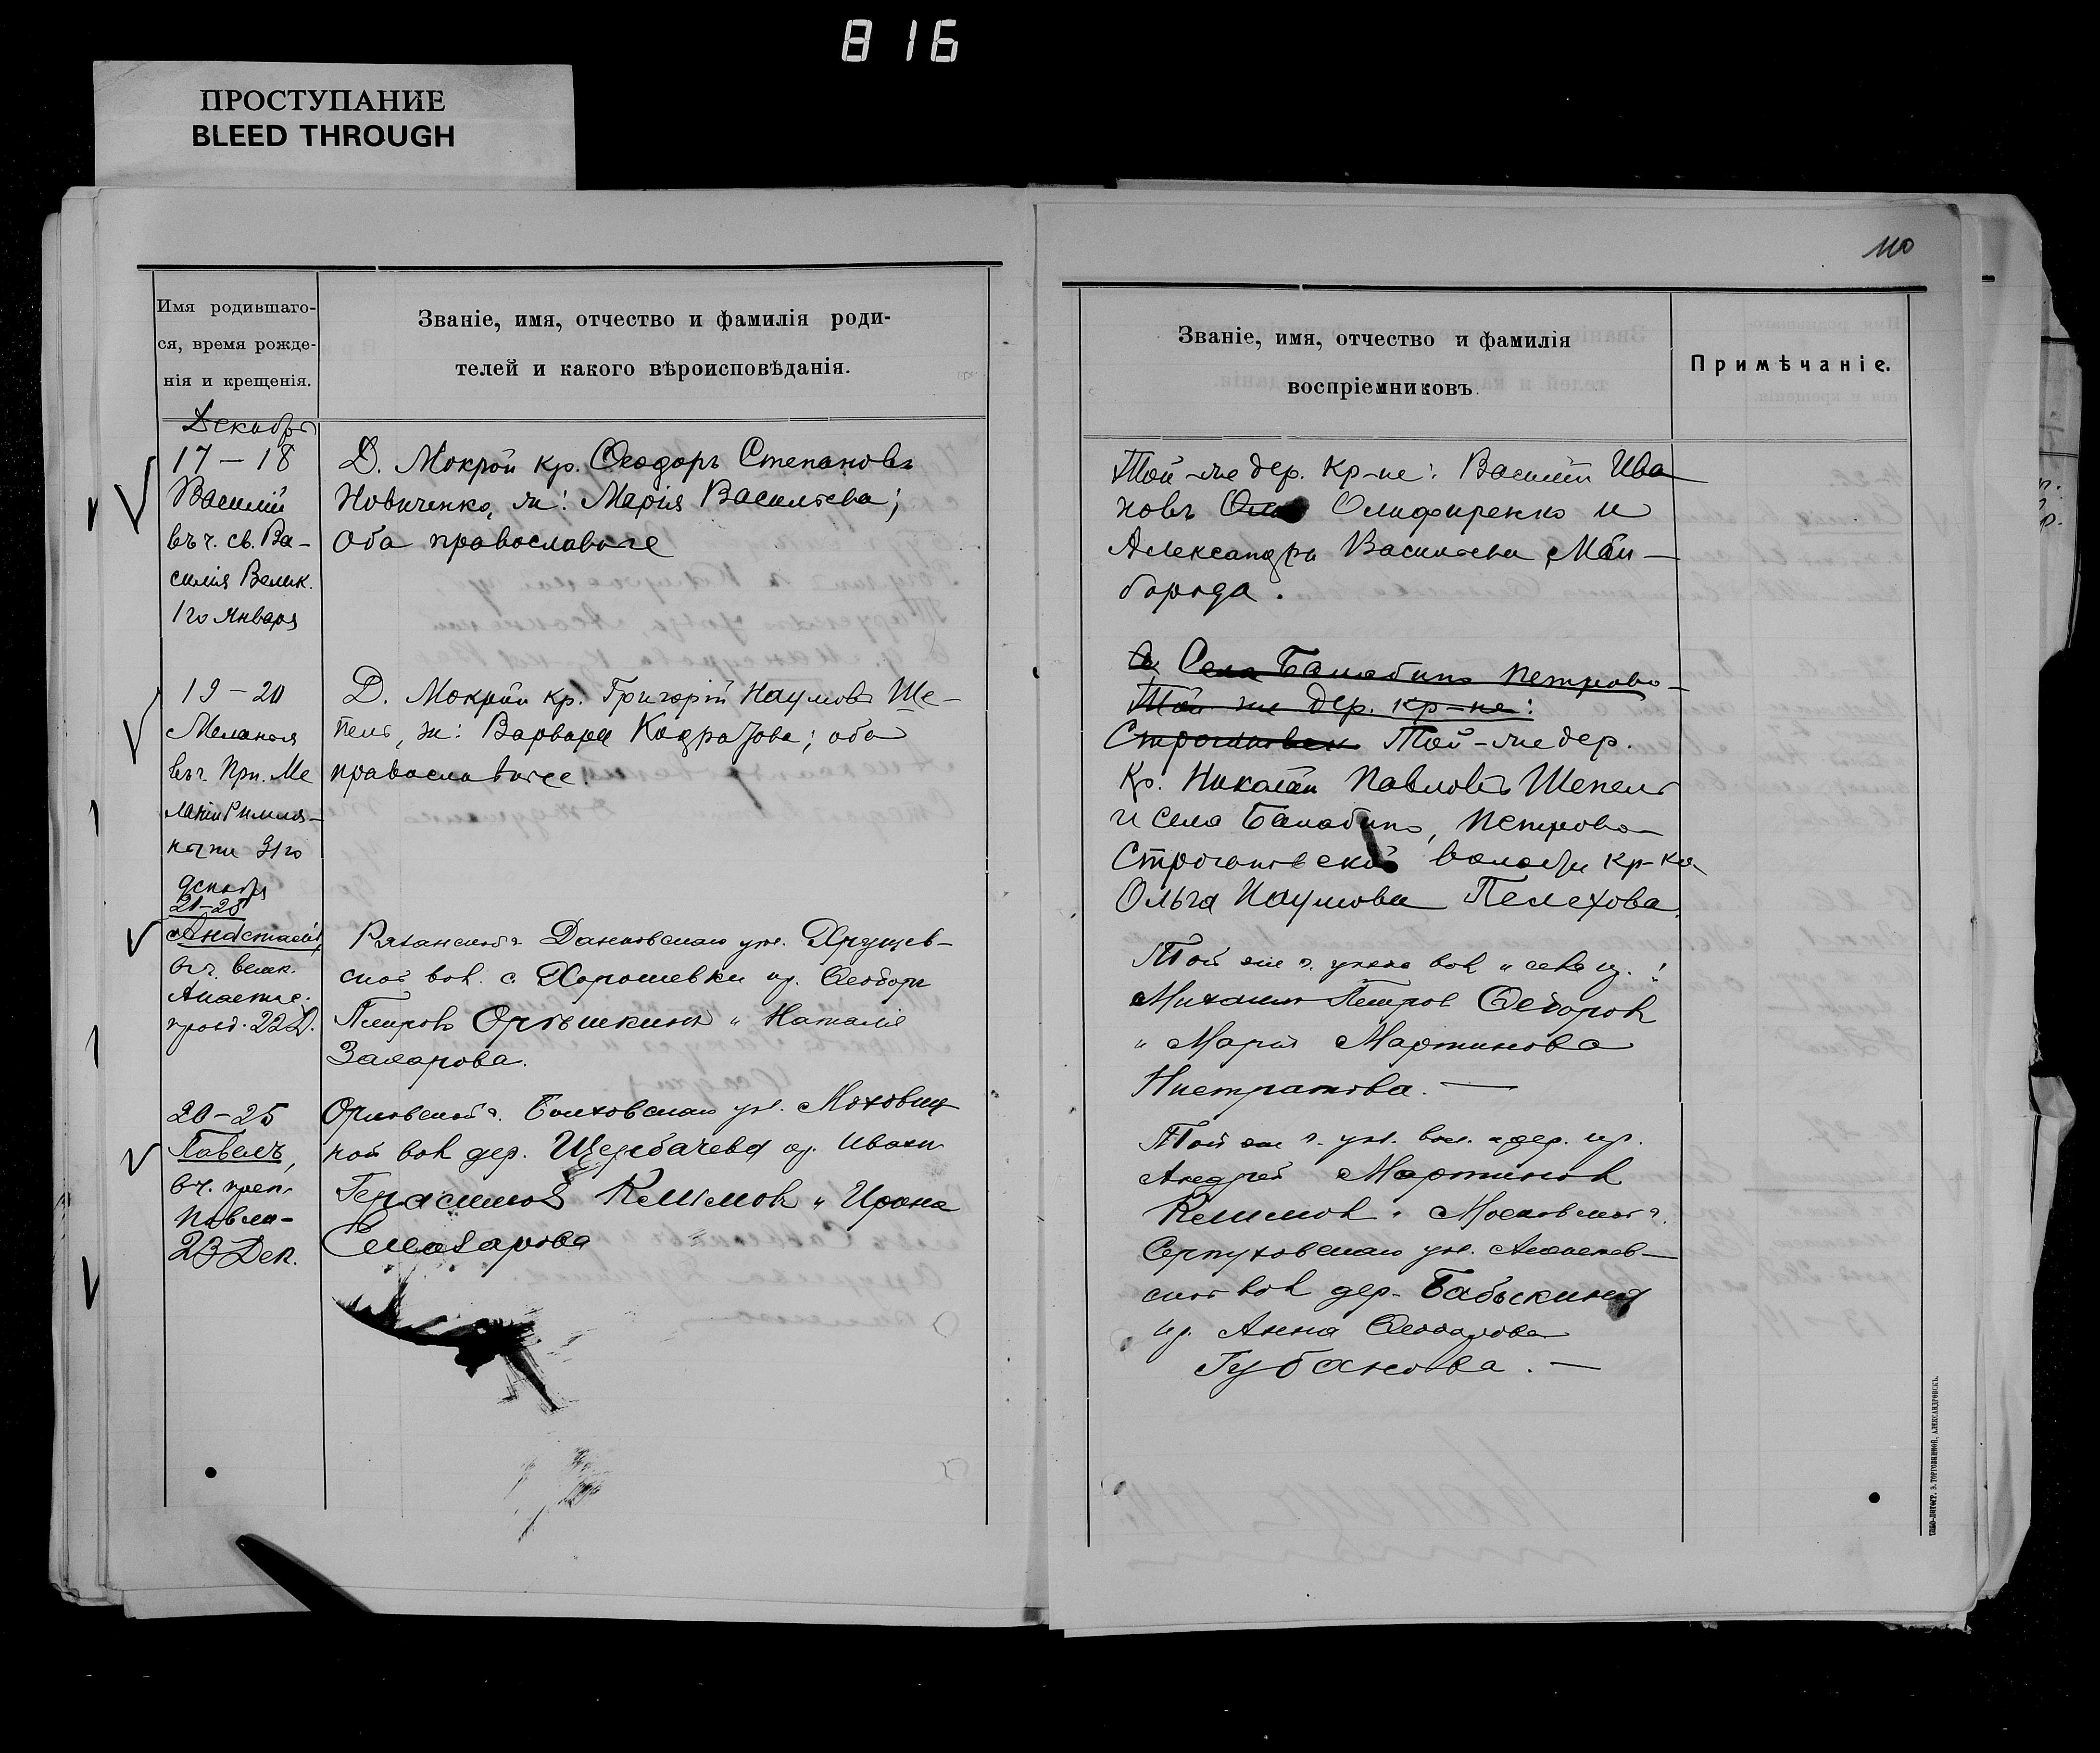 816
ПРОСТУПАНИЕ
BLEED THROUGH
110
Имя родившаго-
ся, время рожде-
нія и крещенія.
Званіе, имя, отчество и фамилія роди-
телей и какого вѣроисповѣданія.
Декабрь
17 – 18
Василій
въ ч. св. Ва-
силія Велик.
1го Января
Д. Мокрой кр. Ѳеодоръ Степановъ
Новиченко, ж: Марія Васильева;
оба православные
19 – 20
Меланія
въ ч. Прп. Ме
ланіи Римля-
ныни 31го
декабря
Д. Мокрой кр. Григорій Наумовъ Ше-
пель, ж: Варвара Кодратова; оба
православные.
21–25
Анастасія,
въ ч. велик.
Анастас.
празд. 22 Д.
Рязанской г. Данковскаго уѣз. Хрущев-
ской вол. с. Хорошевки кр. Ѳеодоръ
Петровъ Орѣшкинъ и Наталія
Захарова.
20–25
Павелъ,
в ч. преп.
Павла
23 Дек.
Орловской г. Болховскаго уѣз.
ной вол. дер. Щербачева кр. Иванъ
Герасимов Климов и
Елеазарова
Званіе, имя, отчество и фамилія
воспріемниковъ.
Примѣчаніе.
Той-же дер. кр-не: Василій Ива
новъ Олиференко и
Александра Васильева Май-
борода.
Села Балабино Петрово-
Той же дер. кр-не:
Строгановск Той-же дер.
кр. Николай Павловъ Шепель
и села Балабино, Петрово-
Строгановской волости кр-ка
Ольга Наумова Пелехова.
Той же г. уѣзда вол. и села кр.:
Михаилъ Петров Ѳедоров
и Марія Мартинова
Нистратова. —
Той же г. уѣз. вол. и дер. кр.
Андрей Мартинов
Климов и Московской г.
Серпуховскаго уѣз.
ской вол. дер. Бабыкина
кр. Анна Ѳеодорова
Губанова. —
ТИПО-ЛИТОГР. Э. ТОРГОВИЦКОЙ, АЛЕКСАНДРОВСКЪ.